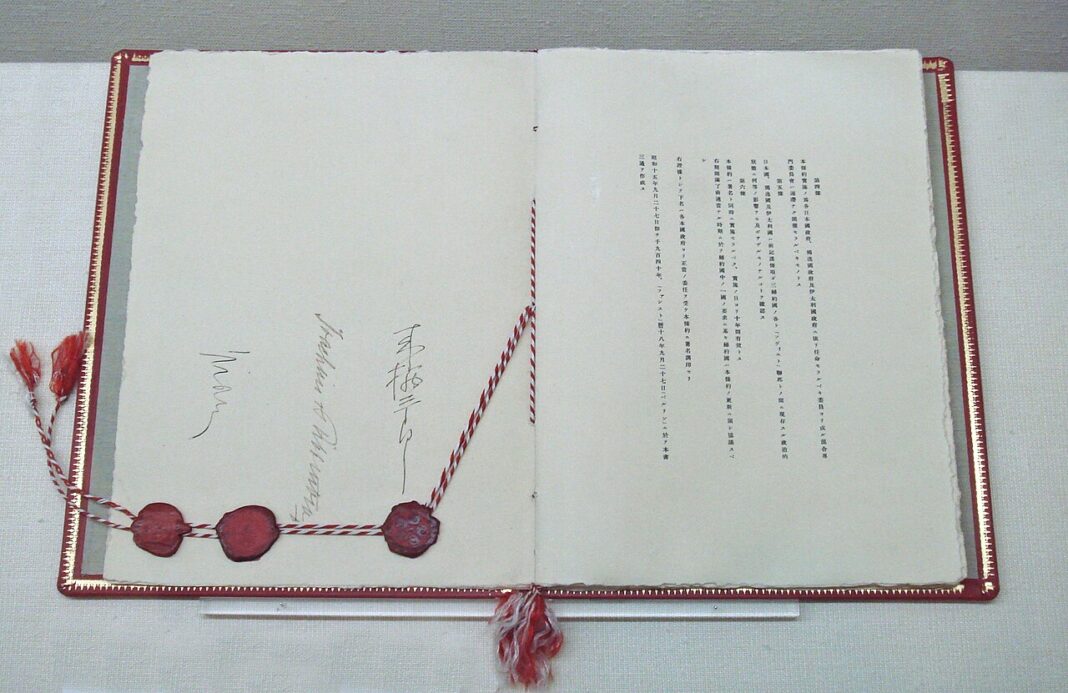 第四條
本條約實施ノ爲各日本國政府、獨逸國政府及伊太利國政府ニ依リ任命セラルベキ委員ヨリ成ル混合專
門委員會ハ遲滯ナク開催セラルベキモノトス
第五條
日本國、獨逸國及伊太利國ハ前記諸條項ガ三締約國ノ各ト「ソヴィエト」聯邦トノ間ニ現存スル政治的
狀態ニ何等ノ影響ヲモ及ボサザルモノナルコトヲ確認ス
第六條
本條約ハ署名ト同時ニ實施セラルベク、實施ノ日ヨリ十年間有效トス
右期間滿了前適當ナル時期ニ於テ締約國中ノ一國ノ要求ニ基キ締約國ハ本條約ノ更新ニ關シ協議スベ
シ
右證據トシテ下名ハ各本國政府ヨリ正當ノ委任ヲ受ケ本條約ニ署名調印セリ
昭和十五年九月二十七日卽チ千九百四十年、「ファシスト」曆十八年九月二十七日「ベルリン」ニ於テ本書
三通ヲ作成ス
来栖三郎
Joachim v Ribbentrop